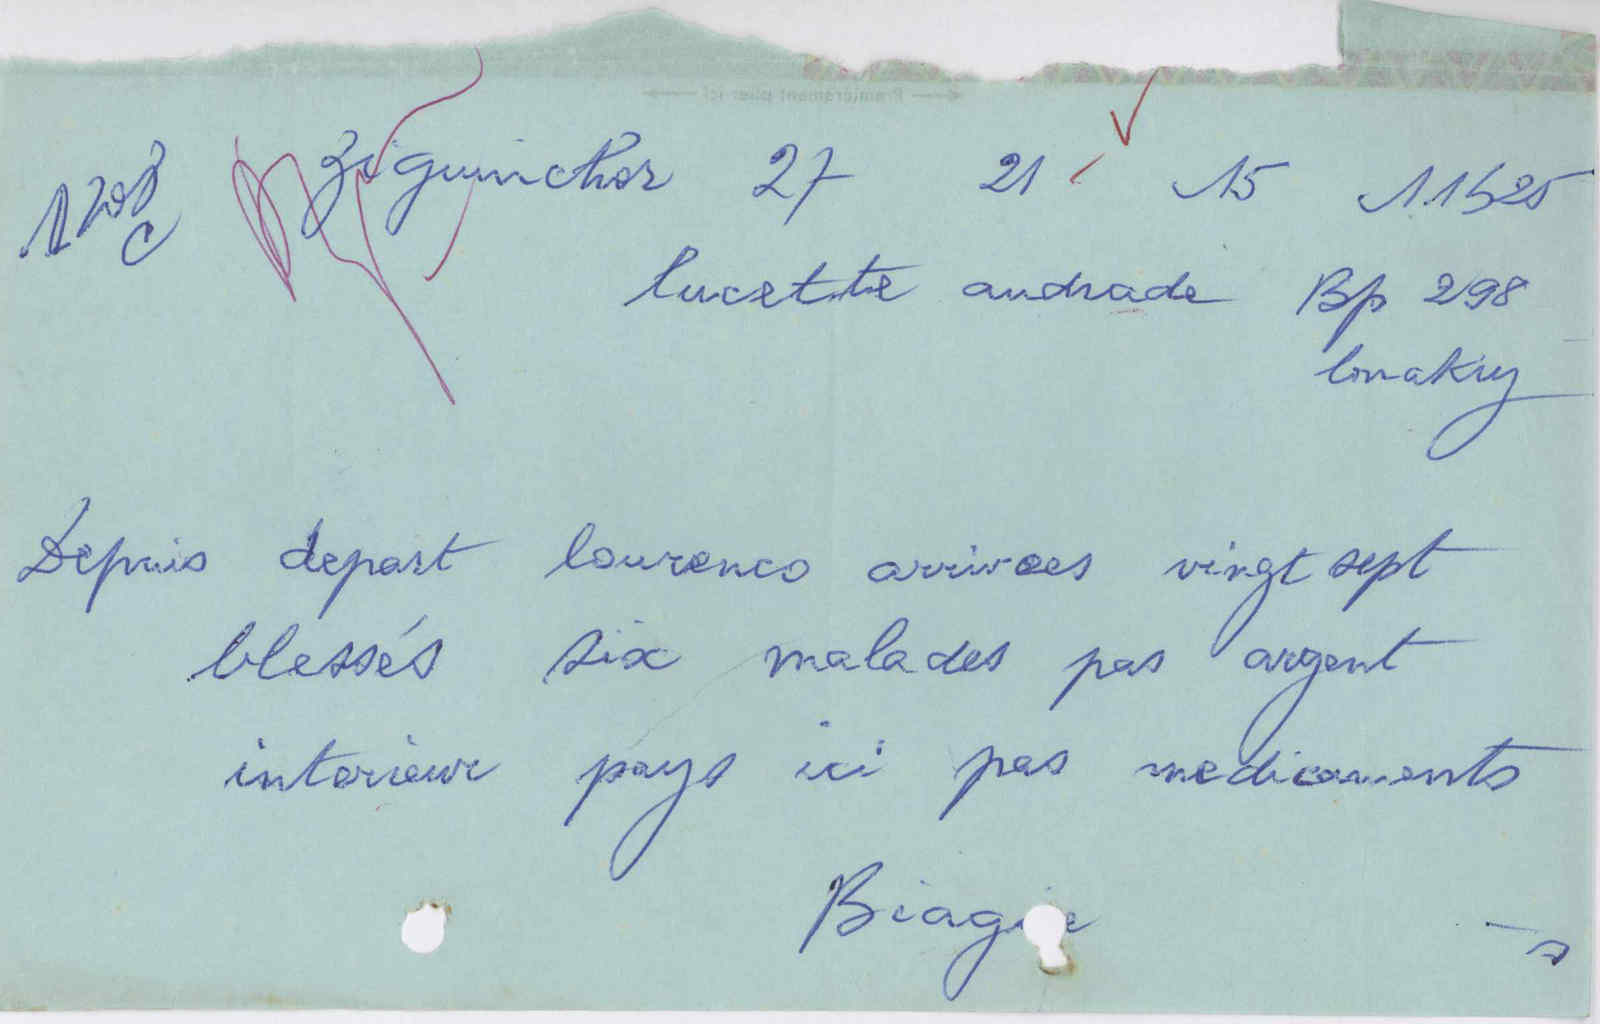 Ziguinchor 27 21 15 11h25
lucette andrade Bp 298
Conakry
Depuis depart lourenco arrivees vingt sept
blessés six malades pas argent
interieur pays ici pas medicaments